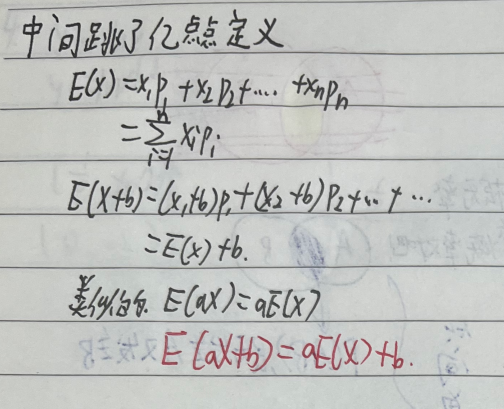 中间跳了亿点点定义
E(x)=x₁p₁+x₂p₂+…+xₙpₙ
=∑ᵢ₌₁ⁿ xᵢpᵢ
E(X+b)=(x₁+b)p₁+(x₂+b)p₂+…+…
=E(x)+b.
类似的有. E(aX)=aE(X)
E(aX+b)=aE(X)+b.